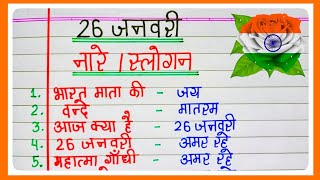 26 जनवरी
नारे / स्लोगन
1. भारत माता की - जय
2. वन्दे - मातरम
3. आज क्या है - 26 जनवरी
4. 26 जनवरी - अमर रहे
5. महात्मा गाँधी - अमर रहे